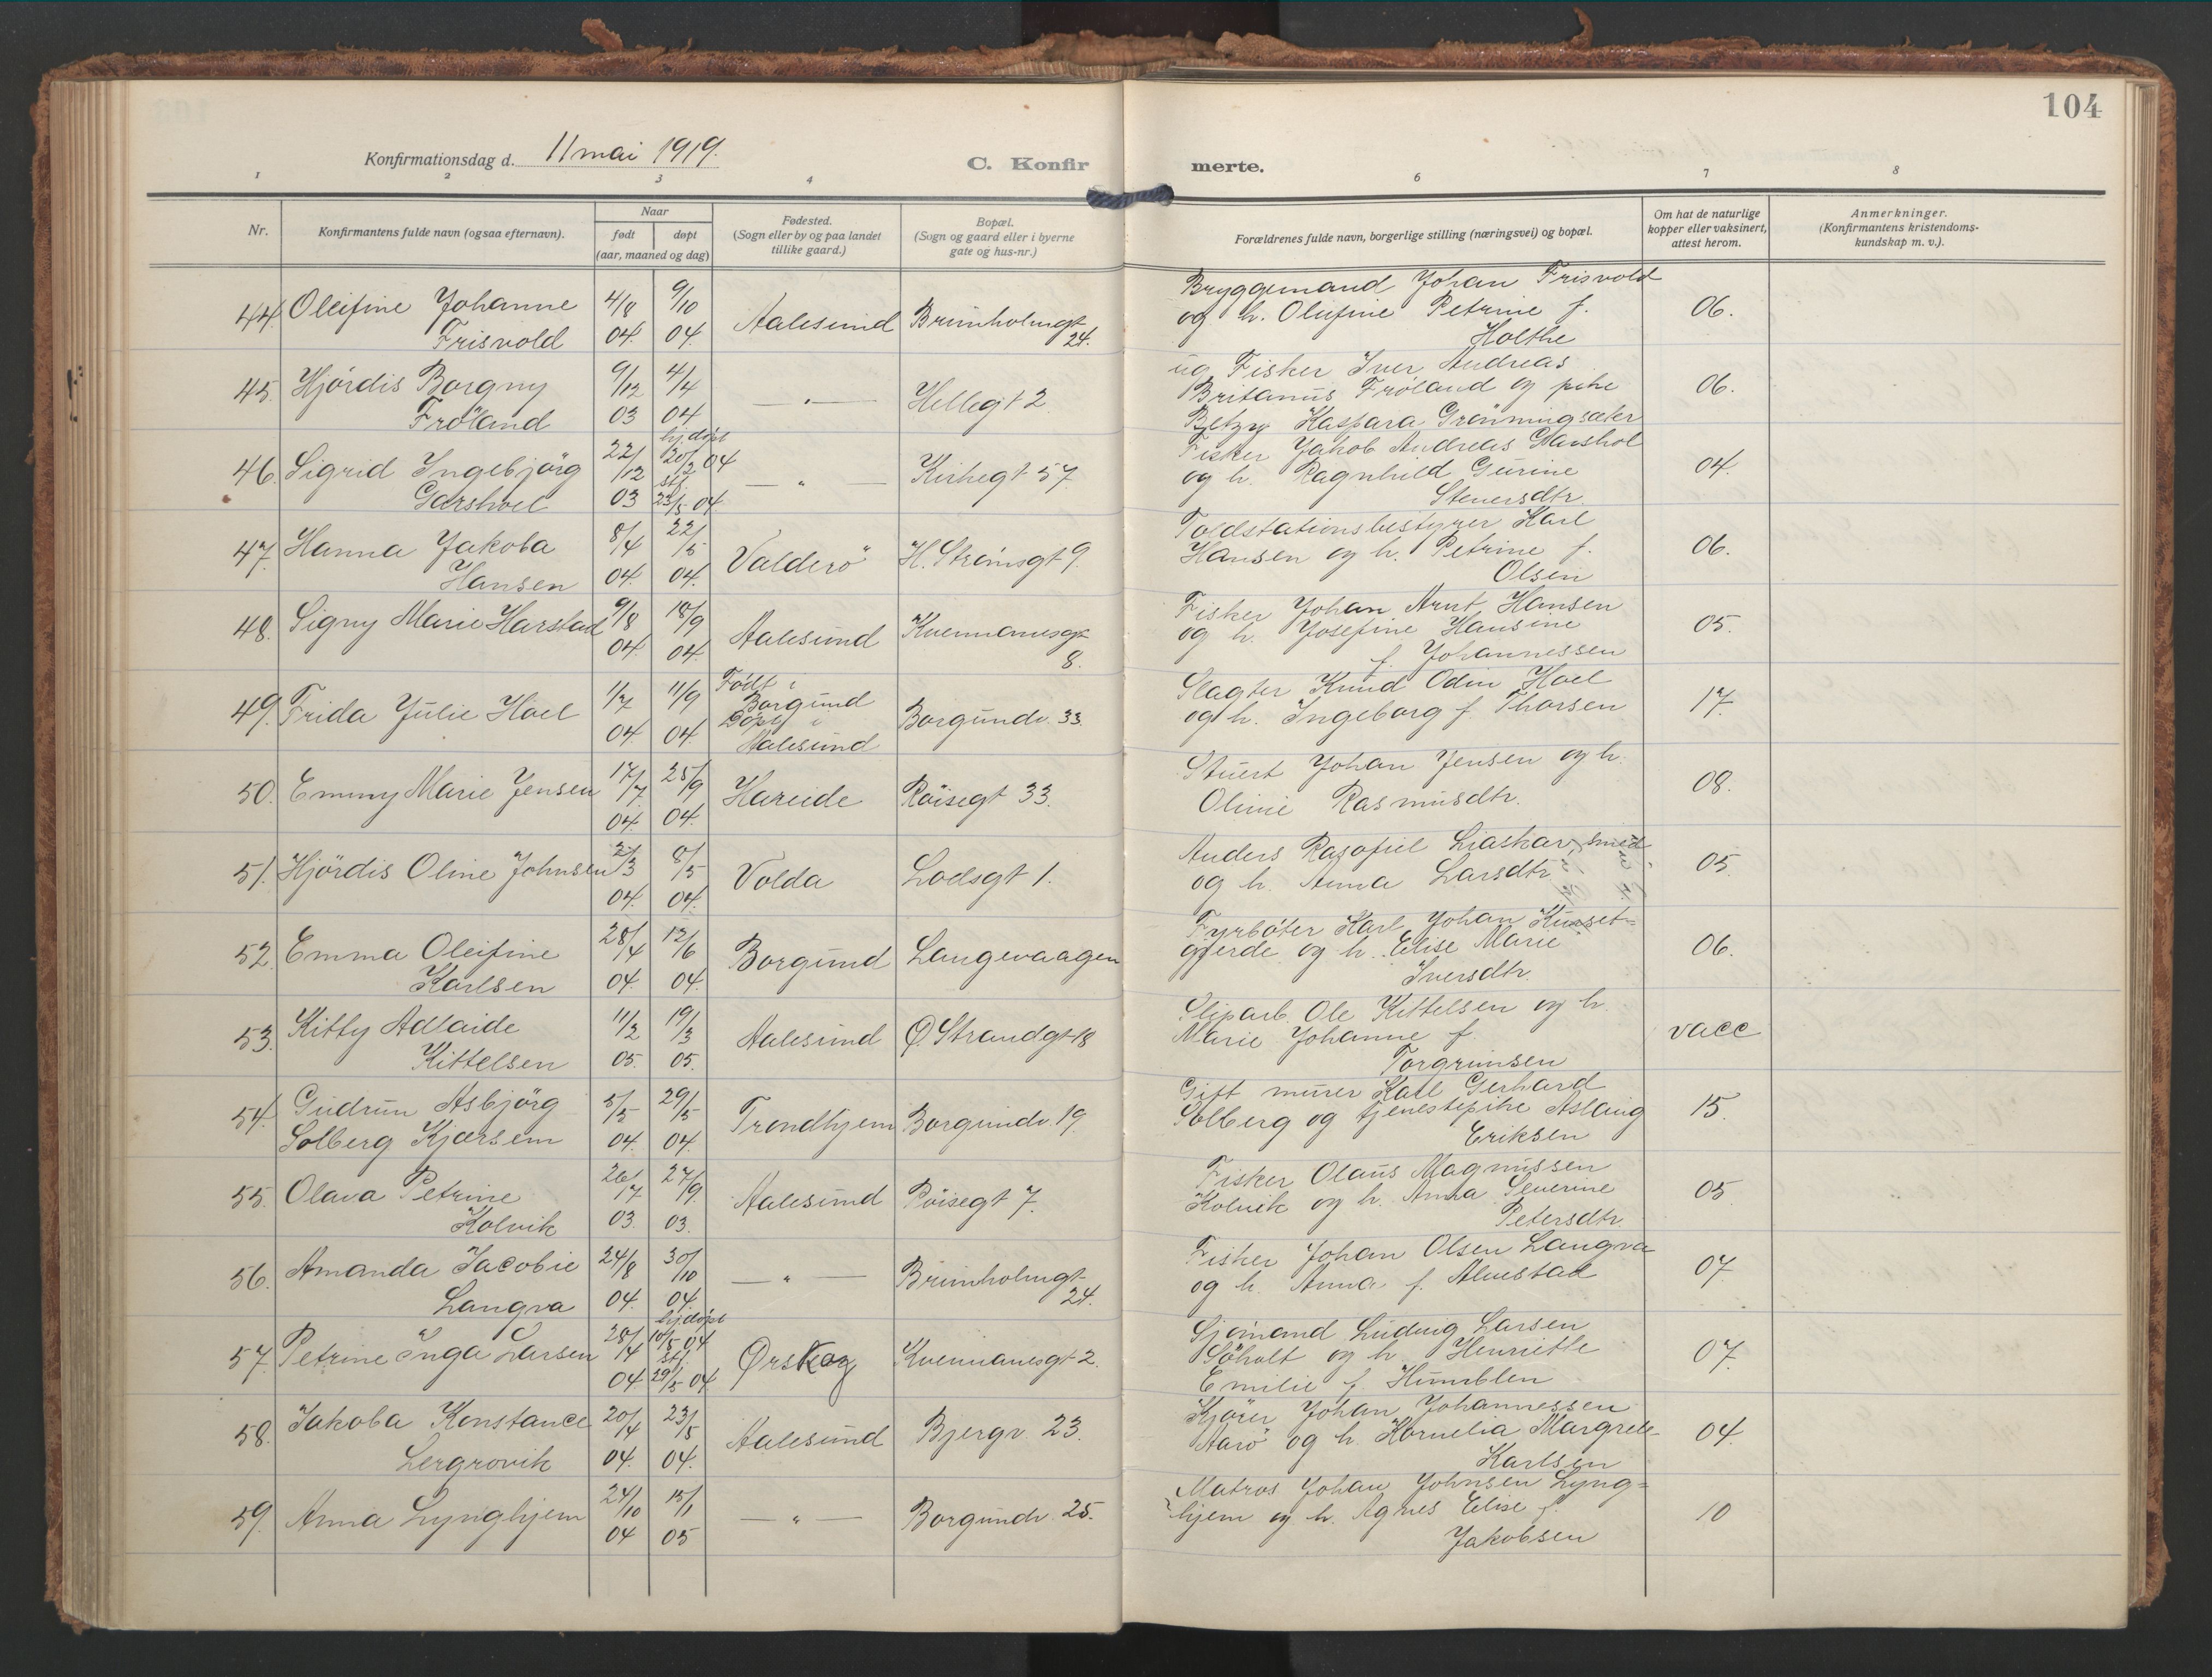 104
Konfirmationsdag d. 11 mai 1919.
C. Konfirmerte.
1 2 3 4 6 7 8
Nr. Konfirmantens fulde navn (ogsaa efternavn). Naar født døpt (aar, maaned og dag) Fødested. (Sogn eller by og paa landet tillike gaard.) Bopæl. (Sogn og gaard eller i byerne gate og hus-nr.) Forældrenes fulde navn, borgerlige stilling (næringsvei) og bopæl. Om hat de naturlige kopper eller vaksinert, attest herom. Anmerkninger. (Konfirmantens kristendoms-kundskap m. v.).
44. Oleifine Johanne Frisvold 4/8 04. 9/10 04. Aalesund Brunholmgt 24. Bryggemand Johan Frisvold og h. Olufine Petrine f. Holthe 06.
45. Hjördis Borgny Fröland 9/12 03 4/4 04 — " — Hellegt 2. ug Fisker Iver Andreas Britanus Fröland og pike Betzy Kaspara Grönningsæter 06.
46. Sigrid Ingebjörg Garshoel 22/12 03 hj.døpt 20/2 04 stf. 23/5 04 — " — Kirkegt 57 Fisker Jakob Andreas Garshol og h. Ragnhild Gurine Steuersdtr. 04.
47. Hanna Jakoba Hansen 8/4 04. 22/5 04. Valderö H. Strömsgt 9. Toldstationsbestyrer Karl Hansen og h. Petrine f. Olsen 06.
48. Signy Marie Harstad 9/8 04. 18/9 04. Aalesund Kvennanesgt 8. Fisker Johan Arnt Hansen og h. Josefine Hansine f. Johannessen 05.
49. Frida Julie Hoel 1/7 04. 11/9 04. Født i Borgund Döpt i Aalesund Borgundv. 33. Slagter Knud Odin Hoel og h. Ingeborg f. Thorsen 17.
50. Emmy Marie Jensen 17/7 04. 25/9 04. Hareide Röisegt 33. Stuert Johan Jensen og h. Oline Rasmusdtr. 08.
51. Hjördis Oline Johnsen 2/3 04. 8/5 04. Volda Lodsgt 1. Anders Liaskar, smed og h. Anna Larsdtr 05.
52. Emma Oleifine Karlsen 28/4 04. 12/6 04. Borgund Langevaagen Fyrböter Karl Johan Kurset- gjerde og h. Elise Marie Iversdtr. 06.
53. Kitty Adlaide Kittelsen 11/2 05. 19/3 05. Aalesund Ø. Strandgt 18 Sliparb. Ole Kittelsen og h. Marie Johanne f. Torgrimsen vacc
54. Gudrun Asbjörg Solberg Kjærsem 5/5 04. 29/5 04. Trondhjem Borgundv. 19. Gift murer Karl Gerhard Solberg og tjenestepike Aslaug Eriksen 15.
55. Olava Petrine Kolvik 26/7 03. 27/9. 03. Aalesund Röisegt 7. Fisker Olaus Magnussen Kolvik og h. Anna Severine Petersdtr. 05
56. Amanda Jacobie Langva 24/8 04. 30/10 04. — " — Brunholmgt 24. Fisker Johan Olsen Langva og h. Anna f. Alnestad 07.
57. Petrine Inga Larsen 28/4 04 hj.døpt 10/5 04 stf. 29/5 04 Ørskog Kvennanesgt 2. Sjömand Ludvig Larsen Söholt og h. Henriette Emilie f. Humblen 07.
58. Jakoba Konstance Lergrovik 20/4 04. 23/5 04. Aalesund Bjergv. 23. Kjörer Johan Johannessen Aarö og h. Kornelia Margrete Karlsen 04.
59. Anna Lynghjem 24/10 04 15/1 05 — " — Borgundv. 25. Matros Johan Johnsen Lyng- hjem og h. Agnes Elise f. Jakobsen 10